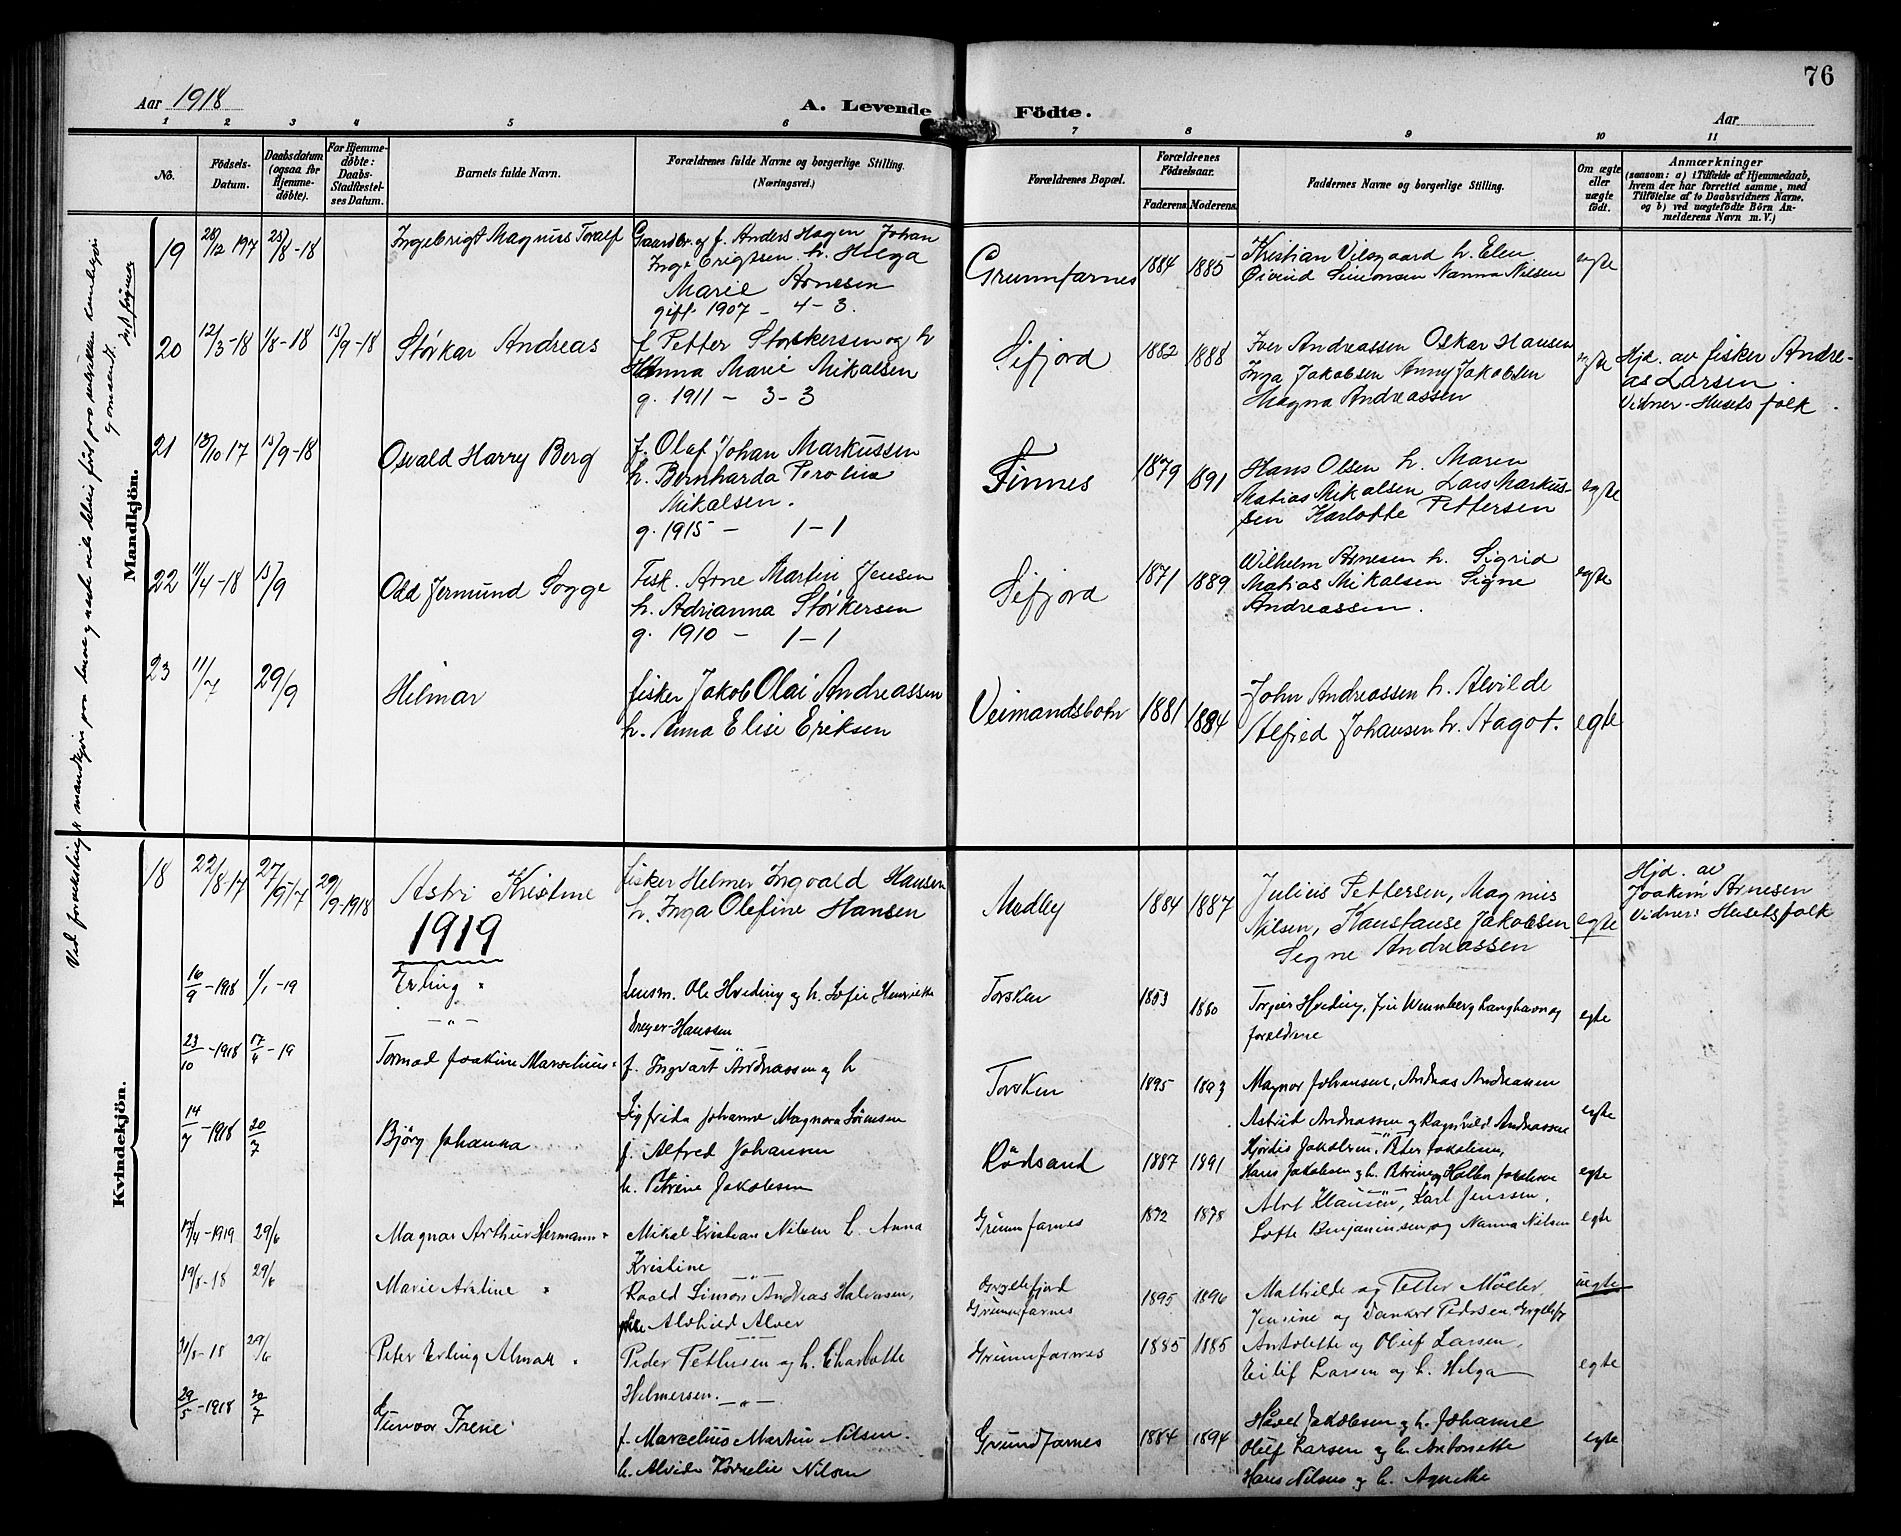 76
Aar 1918
A. Levende Födte.
Aar
1 2 3 4 5 6 7 8 9 10 11
No.
Födsels-Datum.
Daabsdatum (ogsaa for Hjemme-døbte).
For Hjemme-døbte: Daabs-Stadfæstel-ses Datum.
Barnets fulde Navn.
Forældrenes fulde Navne og borgerlige Stilling.
(Næringsvei.)
Forældrenes Bopæl.
Forældrenes Födselsaar.
Faderens. Moderens.
Faddernes Navne og borgerlige Stilling.
Om ægte eller uægte født.
Anmærkninger
(saasom: a) i Tilfælde af Hjemmedaab,
hvem der har forrettet samme, med
Tilföielse af to Daabsvidners Navne,
og b) ved uægtefödte Börn An-
melderens Navn m. V.)
Mandkjön.
19 28/12 1917 25/8-18 Ingebrigt Magnus Toralf
Gaardbr. og f. Anders Hagen Johan
Inge Erigssen h. Helga
Marie Arnesen
gift. 1907 - 4-3.
Grunnfarnes 1884 1885
Kristian Vilsgaard h. Elen
Øivind Simonsen Nanna Nilsen
egte
20 12/3-18 1/8-18 15/9-18 Storkar Andreas
f. Petter Storkersen og h
Hanna Marie Mikalsen
g. 1911 - 3-3
Sifjord 1882 1888
Iver Andreassen Oskar Hansen
Inga Jakobsen Anny Jakobsen
Magna Andreassen
egte
Hjd. av fisker Andre-
as Larsen.
Vidner - Husets folk.
21 13/10 17 15/9-18 Osvald Harry Berg
f. Olaf Johan Markussen
h. Bernharda Petrolina
Mikalsen.
g. 1915 - 1-1
Finnes 1879 1891
Hans Olsen h. Maren
Matias Mikalsen Lars Markus-
sen Karlotte Pettersen
egte
22 11/4-18 15/9 Odd Jermund Sogge
Fisk. Arne Martin Jensen
h. Adrianna Storkersen
g. 1910 - 1-1
Sifjord 1871 1889
Wilhelm Arnesen h. Sigrid
Matias Mikalsen Signe
Andreassen.
egte
23 11/7 29/9 Hilmar
fisker Jakob Olai Andreassen
h. Anna Elise Eriksen
Veimandsbotn 1881 1884
John Andreassen h. Alvilde
Alfred Johansen h. Aagot.
egte
Kvindekjön.
18 22/8-17 27/9-17 29/9-1918 Astri Kristine
fisker Helmer Ingvald Hansen
h. Inga Olefine Hansen
Medby 1884 1887
Julius Pettersen, Magnus
Nilsen, Konstanse Jakobsen
Signe Andreassen
egte
Hjd. av
Joakim Arnesen
Vidner: Husetsfolk
1919
16/9-1918 1/1-19 Erling
Lensm. Ole Hveding og h. Sofie Henriette
Dreyer-Hanssen
Torsken 1853 1880
Torgeir Hveding, fru Wennberg Langhavn og
forældrene
egte
23/10-1918 17/4-19 Tormod Joakim Marselius
f. Ingvart Andreassen og h
Sigfrida Johanne Magnora Sörensen
Torsken 1895 1893
Magnor Johansen, Andreas Andreassen
Astrid Andreassen og Ragnhild Andreassen
egte
14/7-1918 20/7 Björg Johanna
f. Alfred Johansen
h. Petrine Jakobsen
Rödsand 1887 1891
Hjördis Jakobsen, Peter Jakobsen,
Hans Jakobsen og h. Petrine og Halten Jakobsen
egte
17/4-1919 29/6 Magnar Arthur Hermann
Mikal Kristian Nilsen h. Anna
Kristine
Grunnfarnes 1872 1878
Alet Klausen, Karl Jenssen,
Lotte Benjaminsen og Nanna Nilsen
egte
19/8-18 29/6 Marie Arntine
Roald Simon Andreas Halvorsen,
Alvhild Alver
Gryllefjord
Grunnfarnes
1895 1896
Mathilde og Petter Möller,
Jensine og Dankert Pedersen Gryllefj
uegte
31/8-18 29/6 Peter Erling Almar
Peder Pettersen og h. Charlotte
Helmersen.
Grunnfarnes 1885 1885
Antolette og Oluf Larsen,
Eilif Larsen og h. Helga
egte
29/5-1918 20/7 Gunvor Irene
f. Marcelius Martin Nilsen.
h. Alvide Kornelie Nilsen
Grundfarnes 1884 1894
Håvet Jakobsen og h. Johanne
Oluf Larsen og h. Antonette
Hans Nilsen og h. Agnethe
egte